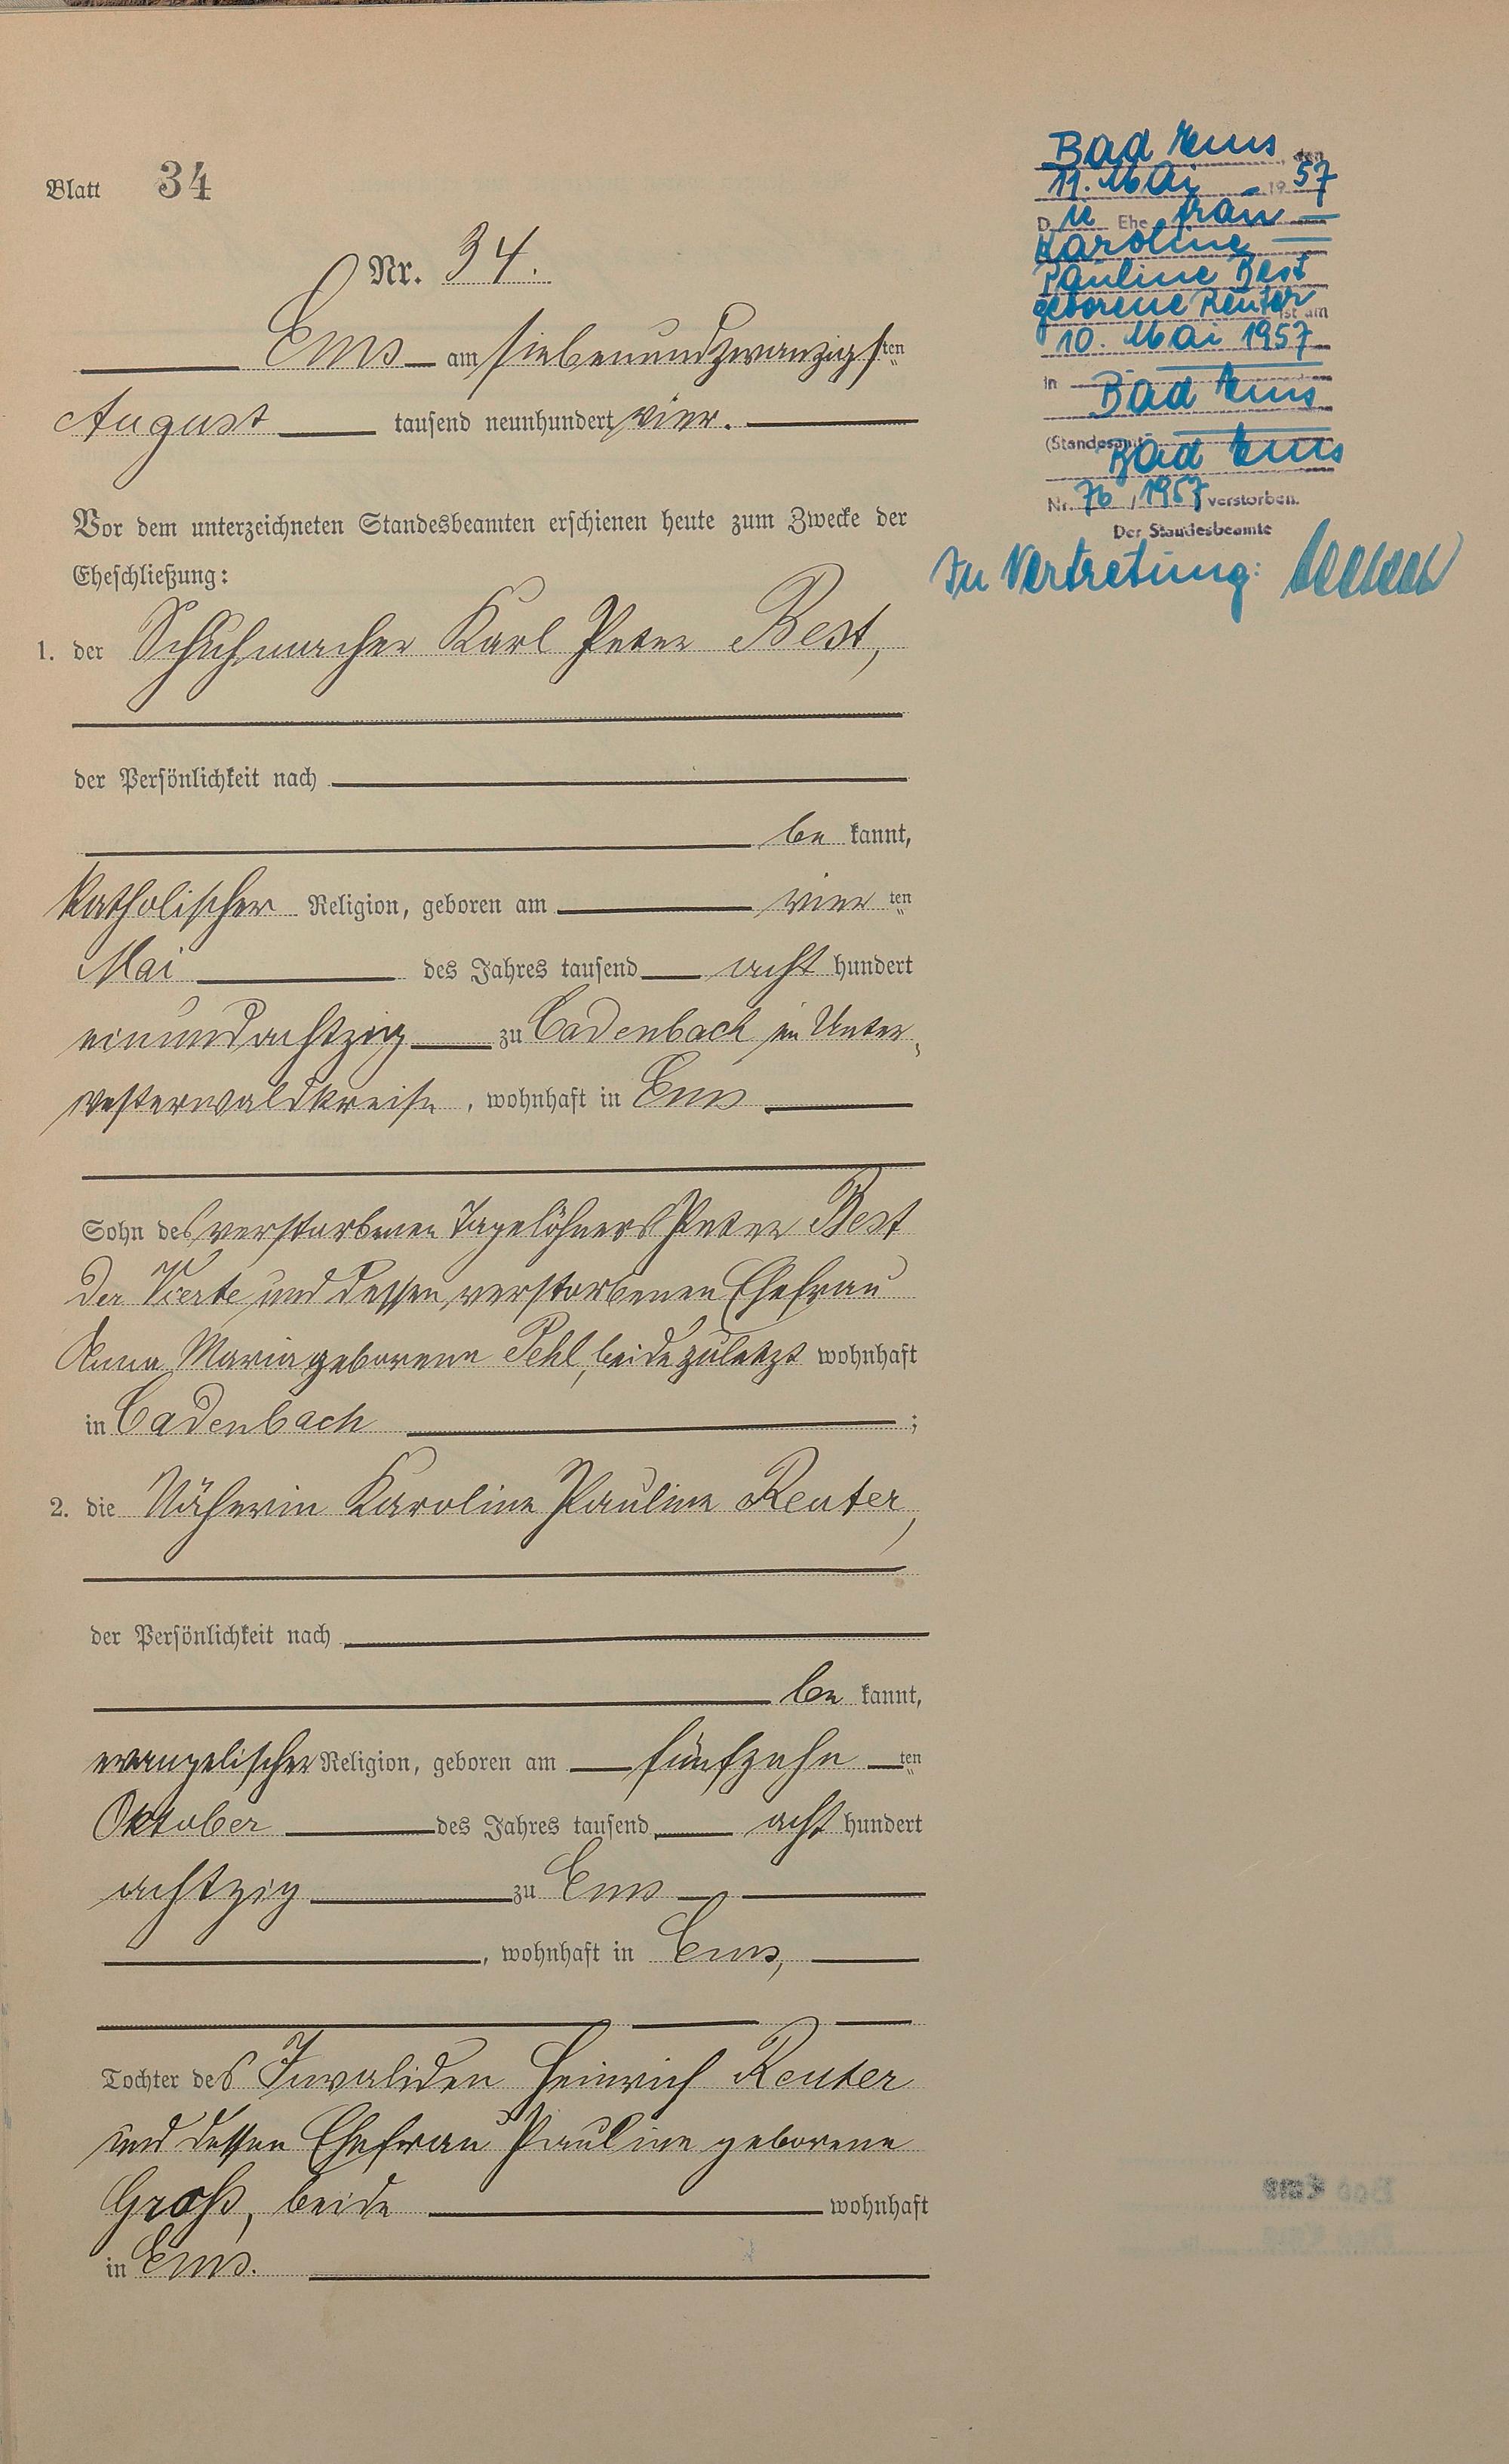 Blatt 34
Nr. 34.
Ems am siebenundzwanzigsten
August tausend neunhundert vier.
Vor dem unterzeichneten Standesbeamten erschienen heute zum Zwecke der
Eheschließung:
1. der Schuhmacher Karl Peter Best,
der Persönlichkeit nach
be kannt,
katholischer Religion, geboren am vier ten
Mai des Jahres tausend acht hundert
einundachtzig zu Cadenbach im Unter-
westerwaldkreise, wohnhaft in Ems
Sohn des verstorbenen Tagelöhners Peter Best
der Vierte und dessen verstorbenen Ehefrau
Anna Maria geborene Pehl, beide zuletzt wohnhaft
in Cadenbach ;
2. die Näherin Karoline Pauline Reuter,
der Persönlichkeit nach
be kannt,
evangelischer Religion, geboren am fünfzehn ten
Oktober des Jahres tausend acht hundert
achtzig zu Ems
, wohnhaft in Ems,
Tochter des Invaliden Heinrich Reuter
und dessen Ehefrau Pauline geborene
Groß, beide wohnhaft
in Ems.
Bad Ems, den
11. Mai 1957
Die Ehefrau
Karoline
Pauline Best
geborene Reuter ist am
10. Mai 1957
in Bad Ems
(Standesamt
Bad Ems
Nr. 76/1957 verstorben.
Der Standesbeamte
In Vertretung: